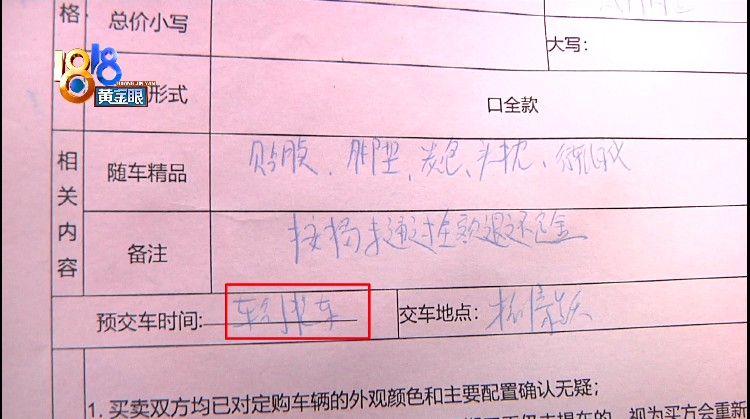 格 总价小写
大写：
1818
黄金眼
形式 口全款
相关内容
随车精品 贴膜、脚垫、炭包、头枕、
备注 按揭未通过全额退还定金
预交车时间: 车到提车 交车地点:
1. 买卖双方均已对定购车辆的外观颜色和主要配置确认无疑;
视为买方会重新